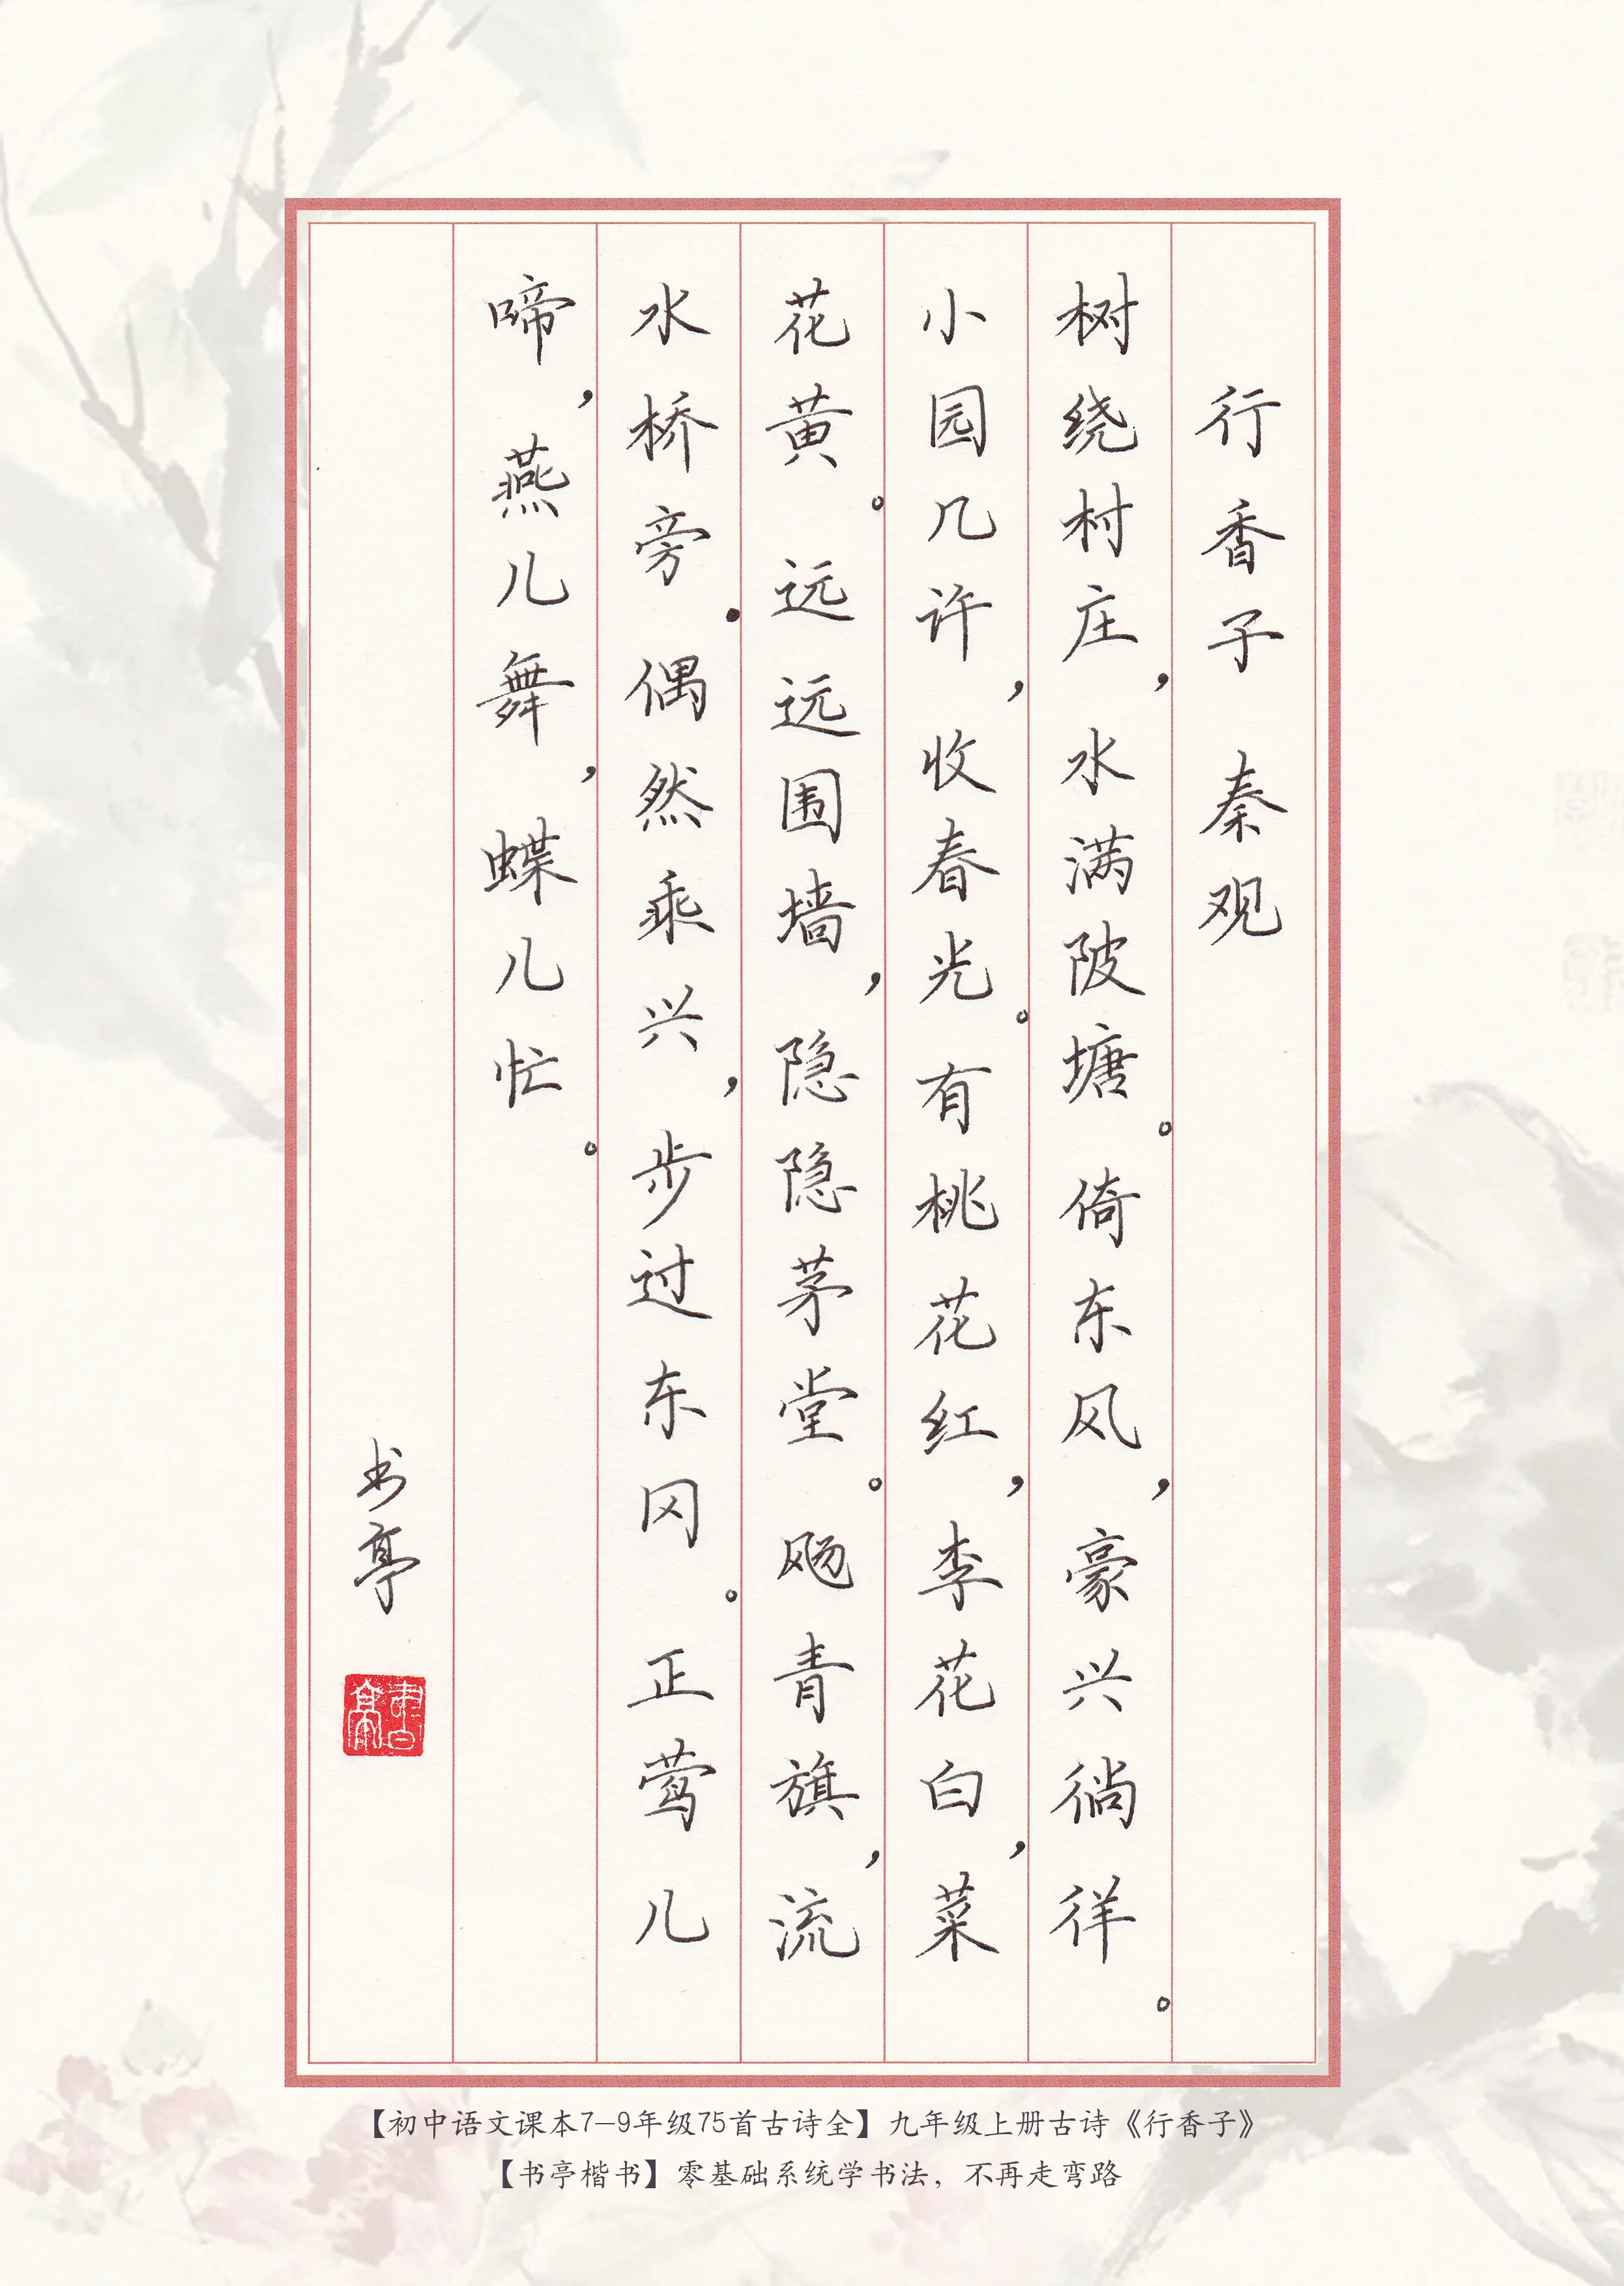 行香子 秦观
树绕村庄，水满陂塘。倚东风，豪兴徜徉。
小园几许，收春光。有桃花红，李花白，菜
花黄。远远围墙，隐隐茅堂。飏青旗，流
水桥旁.偶然乘兴，步过东冈。正莺儿
啼，燕儿舞，蝶儿忙。
书亭
書亭
【初中语文课本7-9年级75首古诗全】九年级上册古诗《行香子》
【书亭楷书】零基础系统学书法，不再走弯路